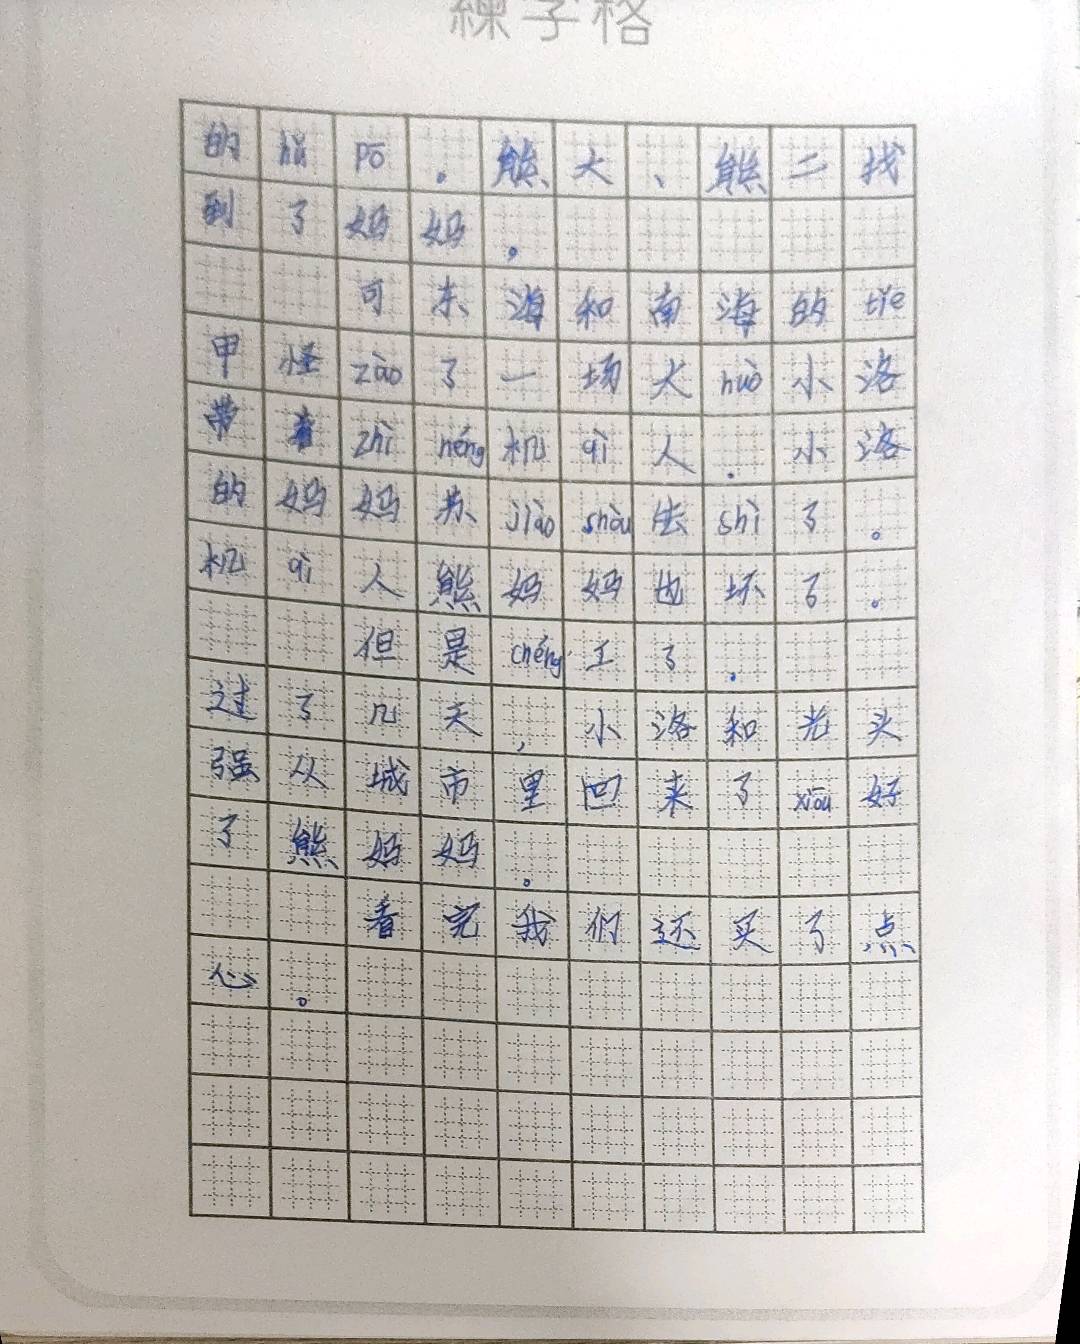 練字格
的 pō 。熊大、熊二找
到了妈妈。
可东海和南海的tiě
甲怪zào了一场大huò小洛
带着zhì néng机qì人.小洛
的妈妈苏jiào shòu去shì了。
机qì人熊妈妈也坏了。
但是chéng工了.
过了几天,小洛和光头
强从城市里回来了xiōu好
了熊妈妈。
看完我们还买了点
心。